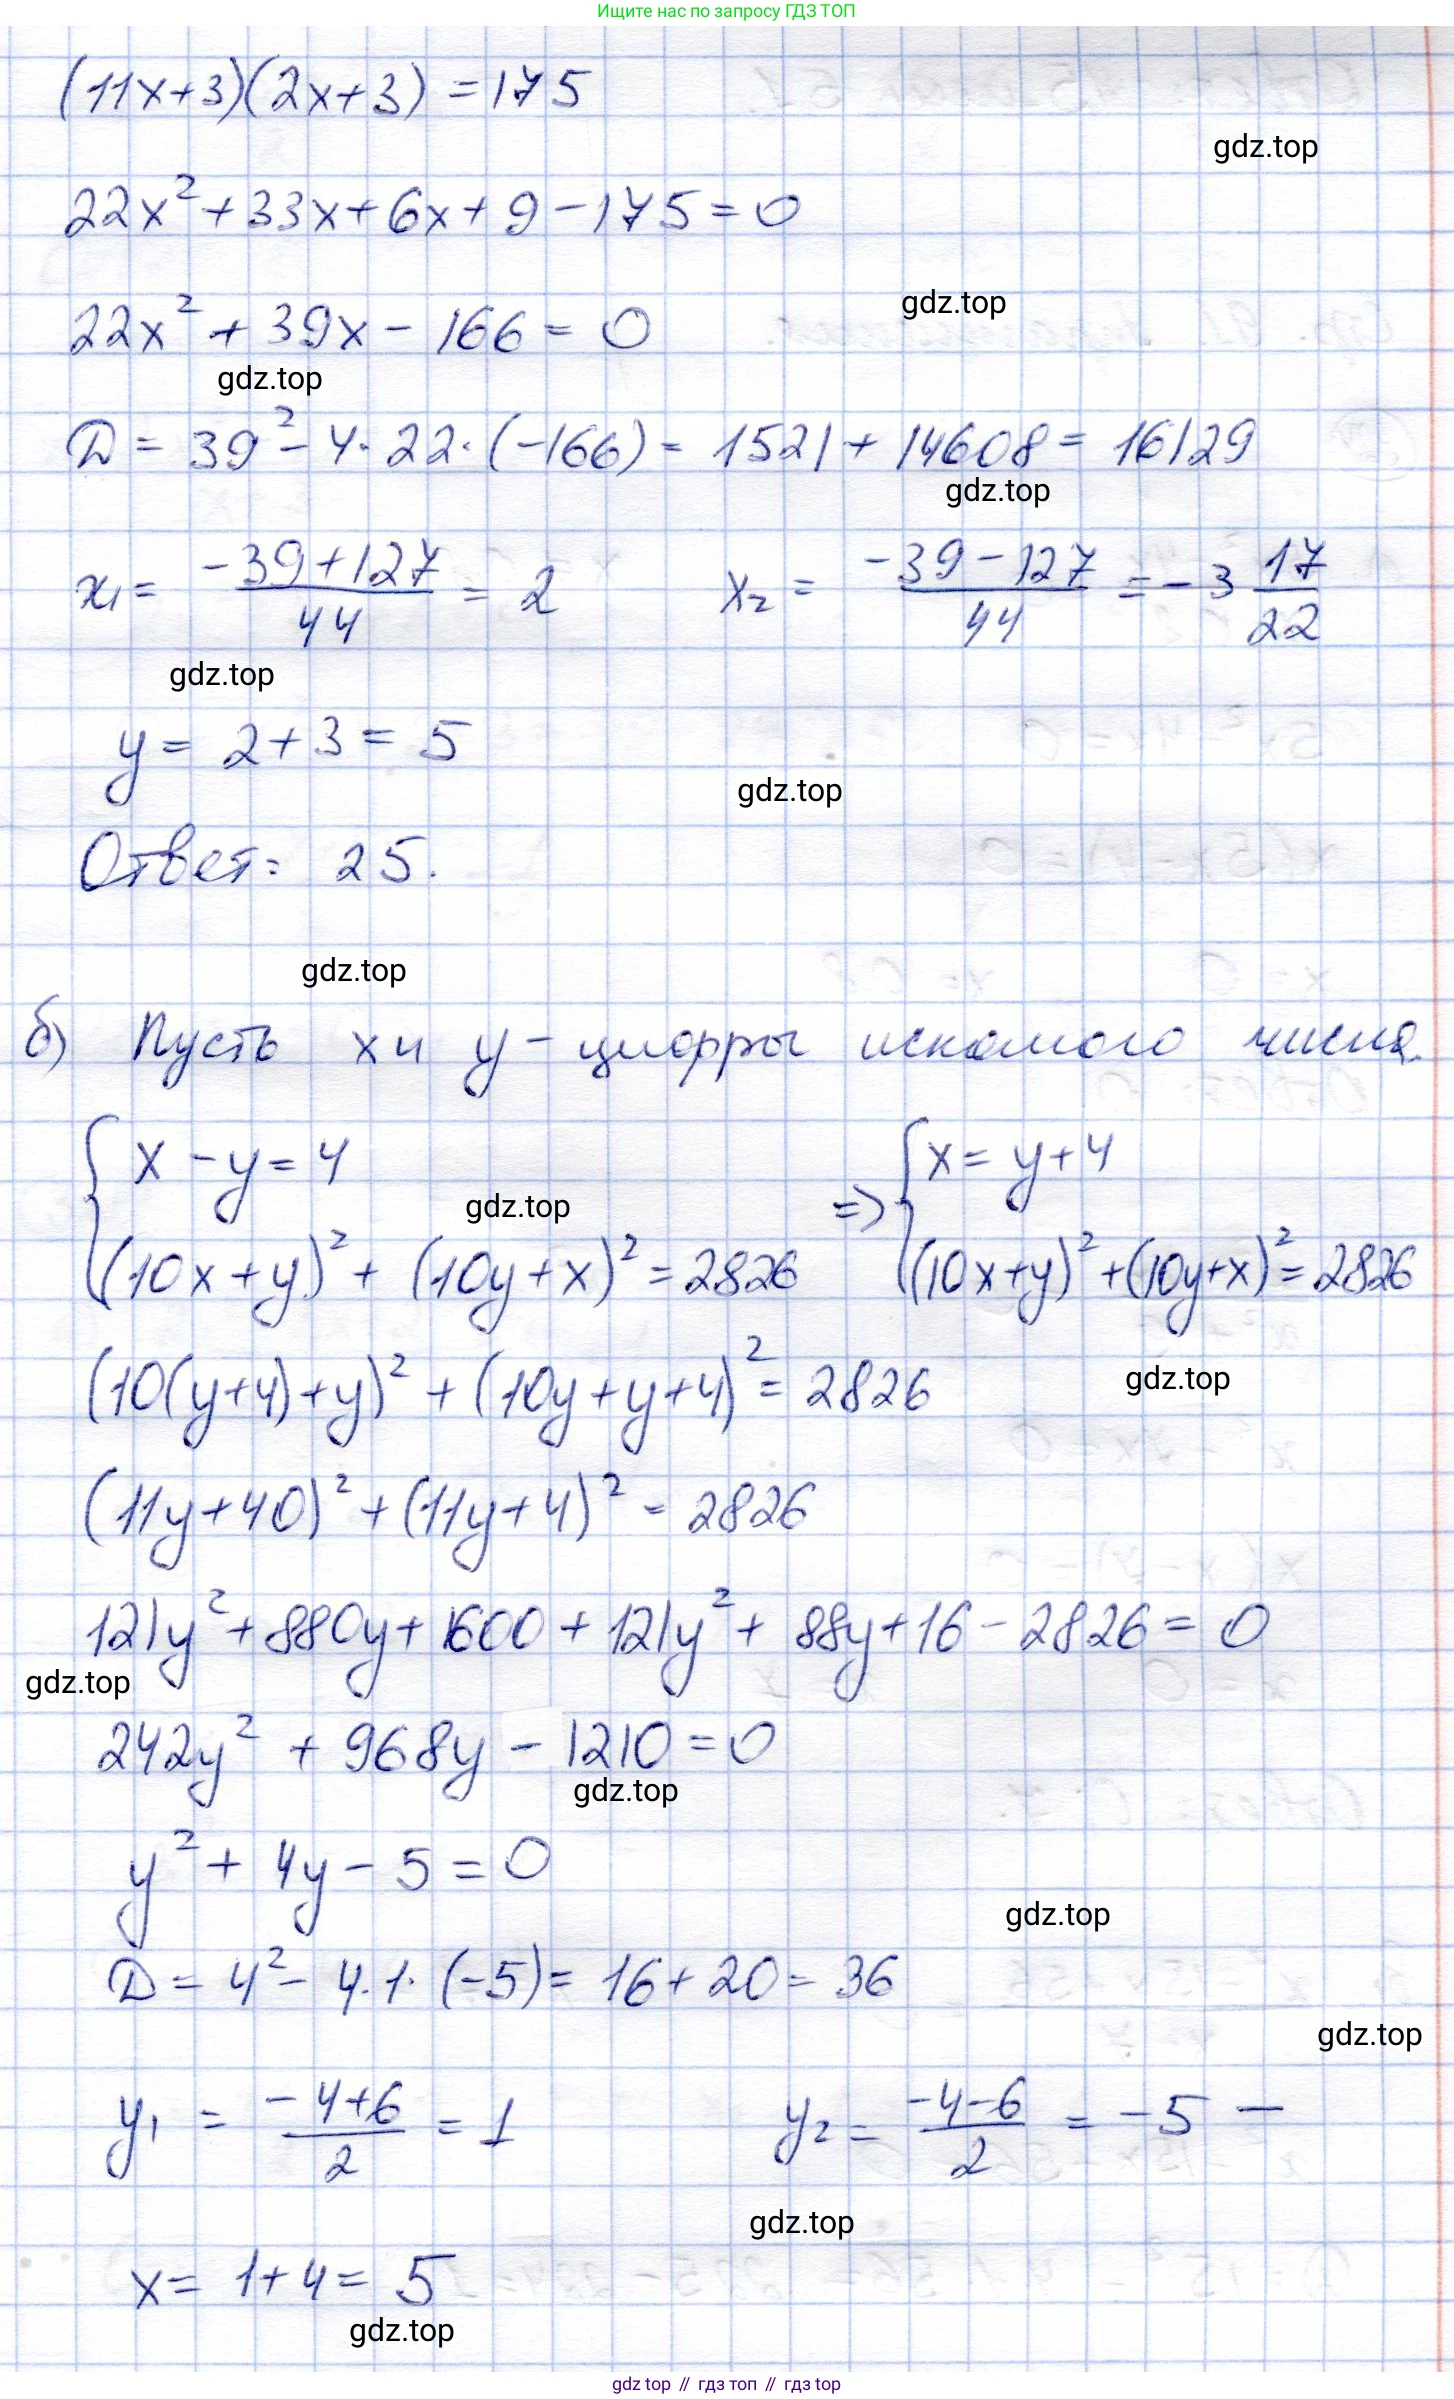 Ищите нас по запросу ГДЗ ТОП
(11x+3)(2x+3) = 175
gdz.top
22x² + 33x + 6x + 9 - 175 = 0
gdz.top
22x² + 39x - 166 = 0
gdz.top
D = 39² - 4·22·(-166) = 1521 + 14608 = 16129
gdz.top
x₁ = (-39+127)/44 = 2   x₂ = (-39-127)/44 = -3 17/22
gdz.top
y = 2+3 = 5
gdz.top
Ответ: 25.
gdz.top
б) Пусть x и y - цифры искомого числа.
{ x - y = 4   => { x = y+4
gdz.top
(10x+y)² + (10y+x)² = 2826   (10x+y)² + (10y+x)² = 2826
(10(y+4)+y)² + (10y+y+4)² = 2826
gdz.top
(11y+40)² + (11y+4)² = 2826
121y² + 880y + 1600 + 121y² + 88y + 16 - 2826 = 0
gdz.top
242y² + 968y - 1210 = 0
gdz.top
y² + 4y - 5 = 0
gdz.top
D = 4² - 4·1·(-5) = 16 + 20 = 36
gdz.top
y₁ = (-4+6)/2 = 1   y₂ = (-4-6)/2 = -5 —
gdz.top
x = 1+4 = 5
gdz.top
gdz top // гдз топ // гдз top